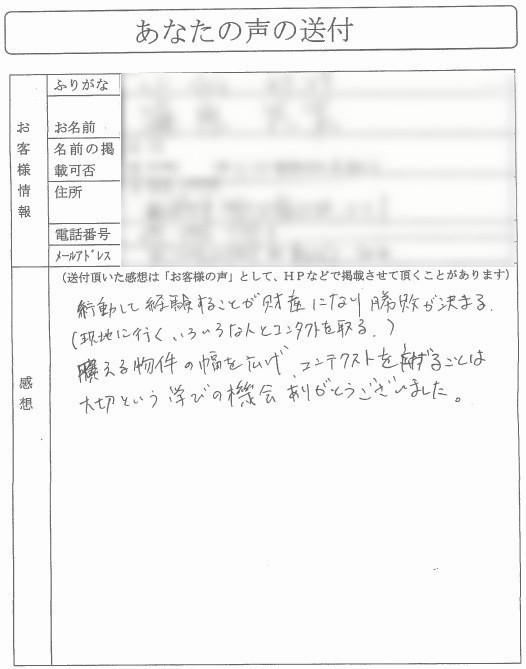 あなたの声の送付
お客様情報
ふりがな
お名前
名前の掲
載可否
住所
電話番号
メールアドレス
感想
(送付頂いた感想は「お客様の声」として、HPなどで掲載させて頂くことがあります)
行動して経験することが財産になり勝敗が決まる.
(現地に行く、いろいろな人とコンタクトを取る.)
買える物件の幅を広げ、コンテクストを広げることは
大切という学びの機会ありがとうございました。